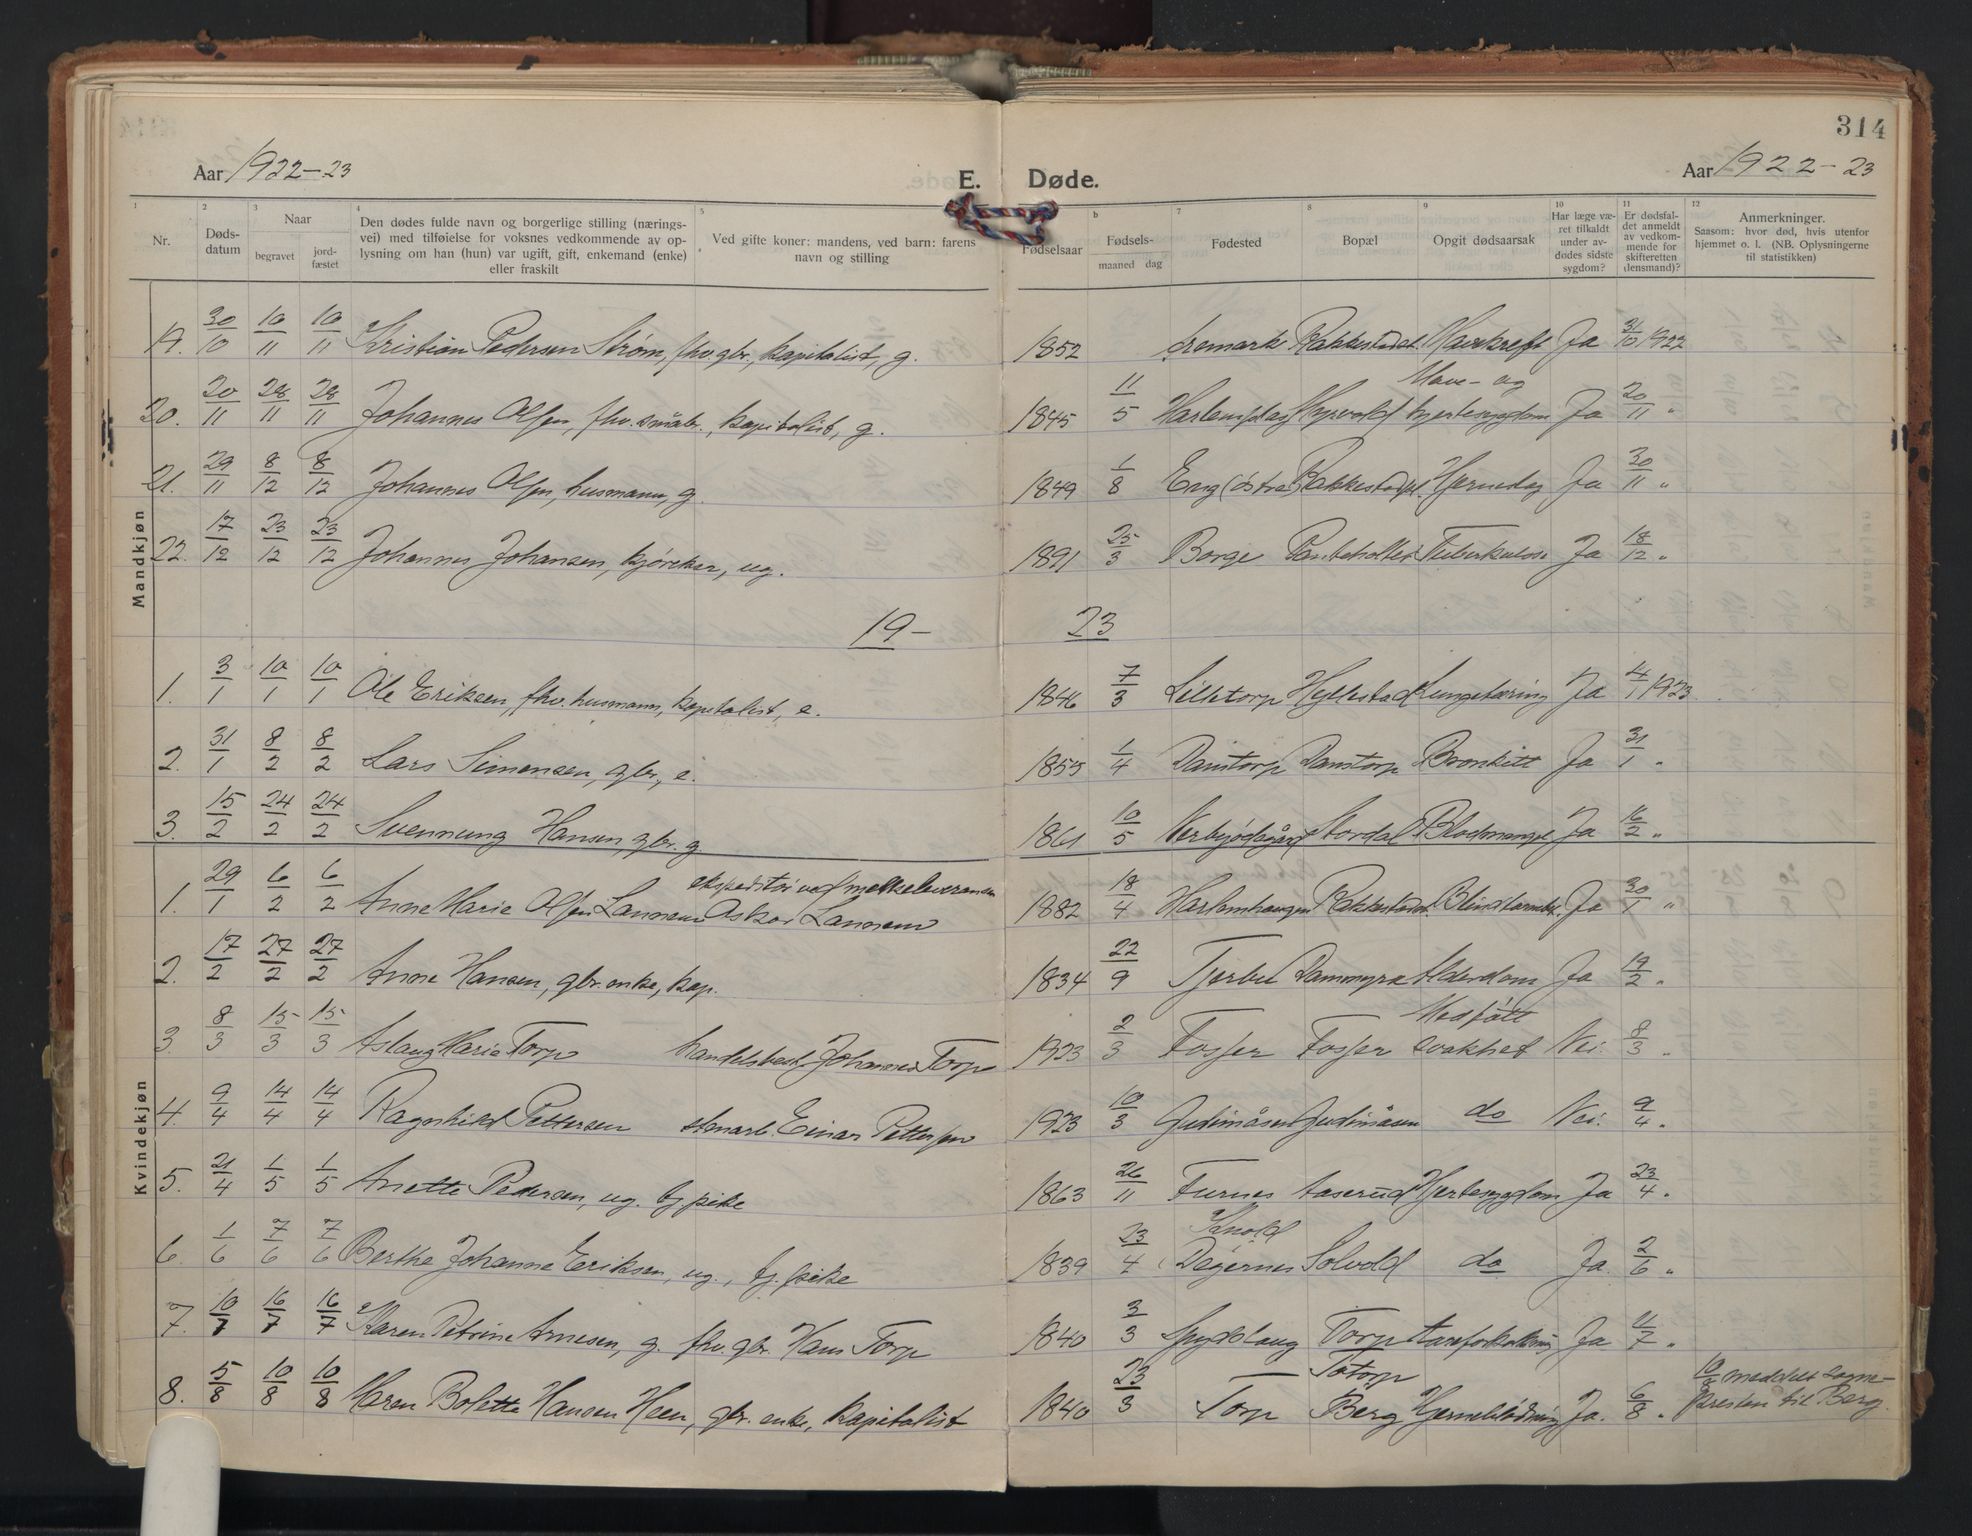 314
Aar 1922-23 E. Døde. Aar 1922-23
1 2 3 4 5 6 7 8 9 10 11 12
Nr. Dødsdatum Naar begravet jordfæstet
Den dødes fulde navn og borgerlige stilling (nærings-
vei) med tilføielse for voksnes vedkommende av op-
lysning om han (hun) var ugift, gift, enkemand (enke)
eller fraskilt
Ved gifte koner: mandens, ved barn: farens
navn og stilling
Fødselsaar
Fødsels-
maaned dag
Fødested
Bopæl
Opgit dødsaarsak
Har læge væ-
ret tilkaldt
under av-
dødes sidste
sygdom?
Er dødsfal-
det anmeldt
av vedkom-
mende for
skifteretten
(lensmand)?
Anmerkninger.
Saasom: hvor død, hvis utenfor
hjemmet o. l. (NB. Oplysningerne
til statistikken)
Mandkjøn
19. 30/10 10/11 10/11 Kristian Pedersen Strøm, fhv. gbr. kapitalist, g. 1852 Aremark Rakkestad Ja 31/10 1922
Mave- og
20. 20/11 28/11 28/11 Johannes Olsen, fhv. småbr., kapitalist, g. 1845 11/5 hjertesygdom Ja 20/11 "
21. 29/11 8/12 8/12 Johannes Olsen, husmann, g. 1849 1/8 Eng (østre) Ja 30/11 "
22. 17/12 23/12 23/12 Johannes Johansen, kjørekar, ug. 1891 25/3 Borge Tuberkulose Ja 18/12 "
19- 23
1. 3/1 10/1 10/1 Ole Eriksen, fhv. husmann, kapitalist, e. 1846 7/3 Lilletorp Lungetæring Ja 4/1 1923
2. 31/1 8/2 8/2 Lars Simensen, gbr., e. 1855 1/4 Damtorp Damtorp Bronkitt Ja 31/1 "
3. 15/2 24/2 24/2 Svennung Hansen, gbr. g. 1861 10/5 Stordal Blodmangel Ja 16/2 "
Kvindekjøn
ekspeditør ved melkeleveransen
1. 29/1 6/2 6/2 Anne Marie Olsen Lannem Oskar Lannem 1882 18/4 Harlemhaugen Rakkestad Blindtarmbet. Ja 30/1 "
2. 17/2 27/2 27/2 Anne Hansen, gbr. enke, kap. 1834 22/9 Dammyra Alderdom Ja 19/2 "
Medfødt
3. 8/3 15/3 15/3 Aslaug Marie Torp handelsbest. Johannes Torp 1923 2/3 Fosser Fosser svakhet Nei. 8/3 "
4. 9/4 14/4 14/4 Ragnhild Pettersen stenarb. Einar Pettersen 1923 10/3 Gudimåsen Gudimåsen do Nei. 9/4 "
5. 21/4 1/5 1/5 Anette Pedersen, ug. tj.pike 1863 26/11 Furnes Aaserud Hjertesygdom Ja 23/4 "
6. 1/6 7/6 7/6 Berthe Johanne Eriksen, ug., tj. pike 1839 23/4 Degernes Solvold do Ja. 2/6 "
7. 10/7 16/7 16/7 Karen Petrine Arnesen, g. fhv. gbr. Hans Torp 1840 3/3 Spydslaug Torp Aareforkalkning Ja 11/7 "
8. 5/8 10/8 10/8 Maren Bolette Hansen Heen, gbr. enke, kapitalist 1840 23/3 Torp Berg Hjerneblødning Ja. 6/8 " 10/8 meddelt sogne-
presten til Berg.